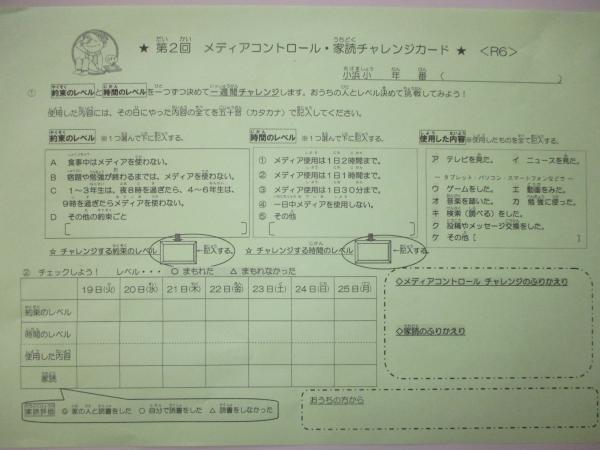 ★ 第2回 メディアコントロール・家読チャレンジカード ★ <R6>
小浜小 年 番 ( )
① 約束のレベルと時間のレベルを一つずつ決めて一週間チャレンジします。おうちの人とレベル決めて挑戦してみよう!
使用した内容には、その日にやった内容の全てを五十音(カタカナ)で記入してください。
約束のレベル ※1つ選んで下に記入する。
A 食事中はメディアを使わない。
B 宿題や勉強が終わるまでは、メディアを使わない。
C 1~3年生は、夜8時を過ぎたら、4~6年生は、
9時を過ぎたらメディアを使わない。
D その他の約束ごと
[ ]
☆ チャレンジする約束のレベル ←記入する。
時間のレベル ※1つ選んで下に記入する。
① メディア使用は1日2時間まで。
② メディア使用は1日1時間まで。
③ メディア使用は1日30分まで。
④ 一日中メディアを使用しない。
⑤ その他
[ ]
☆ チャレンジする時間のレベル ←記入する。
使用した内容 ※使用したものを全て記入。
ア テレビを見た。 イ ニュースを見た。
~ タブレット・パソコン・スマートフォンなどで ~
ウ ゲームをした。 エ 動画をみた。
オ 音楽を聴いた。 カ 勉強に使った。
キ 検索(調べる)をした。
ク 投稿やメッセージ交換をした。
ケ その他[ ]
② チェックしよう! レベル・・・ ○ まもれた △ まもれなかった
19日(火) 20日(水) 21日(木) 22日(金) 23日(土) 24日(日) 25日(月)
約束のレベル
時間のレベル
使用した内容
家読
家読評価 ◎ 家の人と読書をした ○ 自分で読書をした △ 読書をしなかった
◇メディアコントロール チャレンジのふりかえり
◇家読のふりかえり
おうちの方から